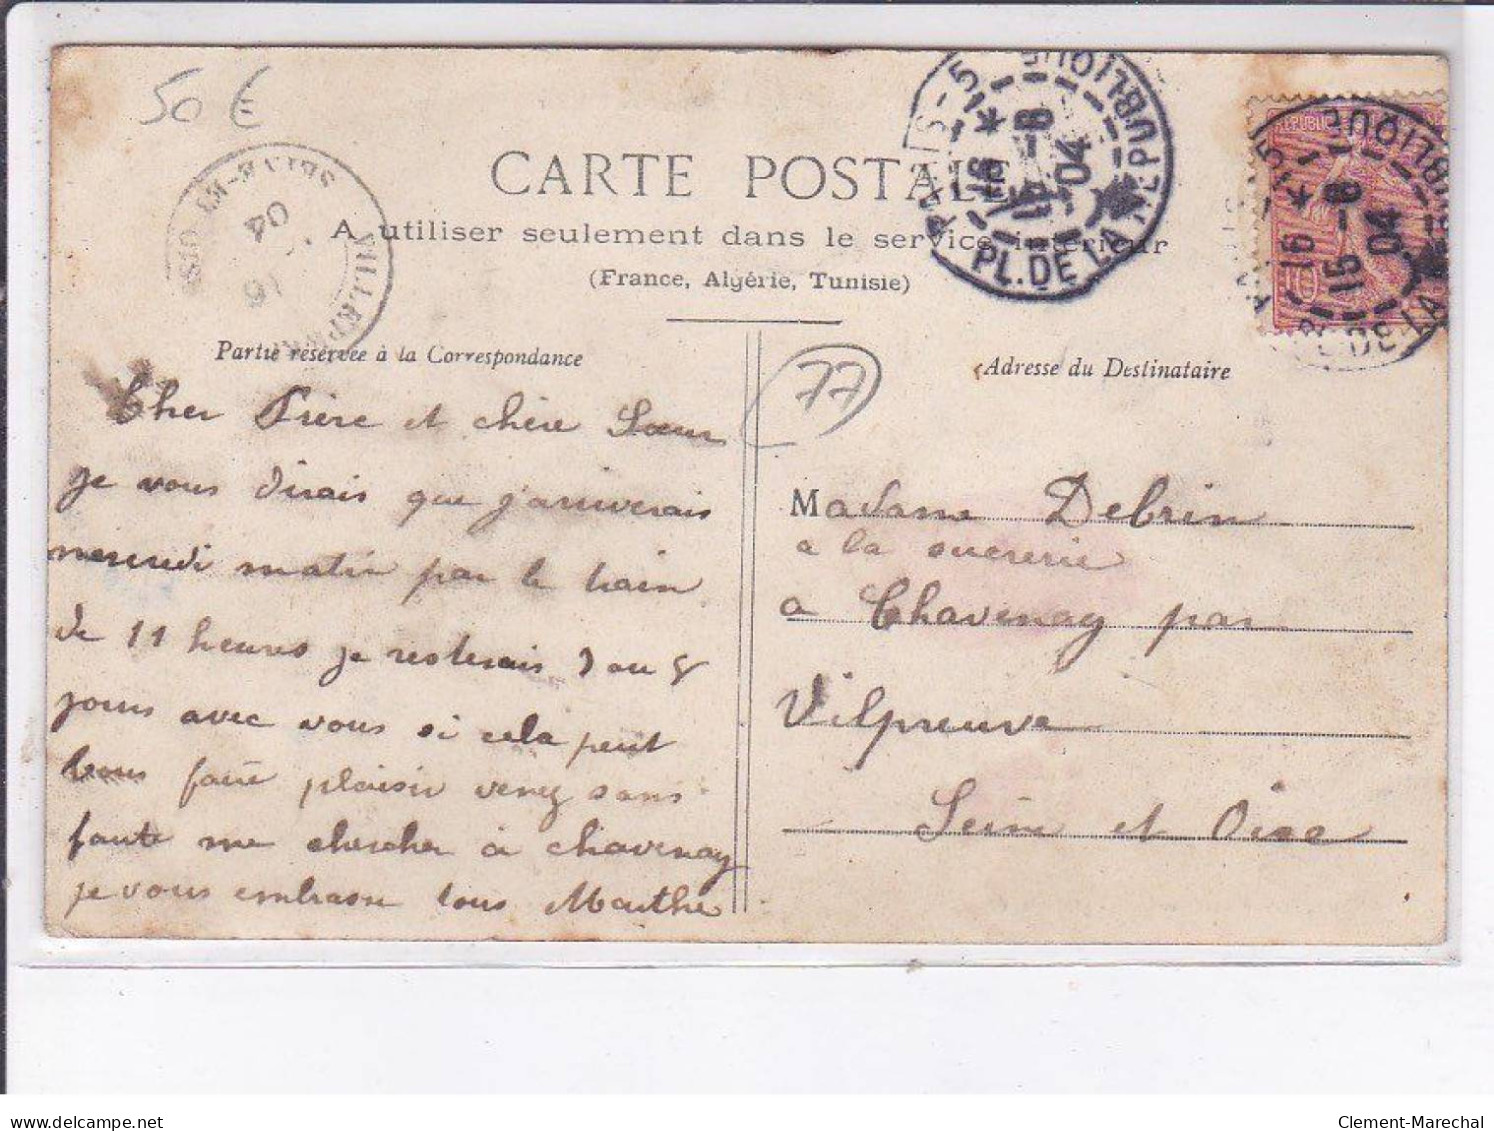 50 €
CARTE POSTALE
A utiliser seulement dans le service intérieur
(France, Algérie, Tunisie)
PARIS-15 PL. DE LA RÉPUBLIQUE
16 * 15 -8 04
PARIS-15 PL. DE LA RÉPUBLIQUE
16 * 15 -8 04
RÉPUBLIQUE
10
SEINE-ET-OISE
16 04
Partie réservée à la Correspondance
77
Adresse du Destinataire
Cher Frère et chère Sœur
je vous dirais que j'ariverais
mercredi matin par le train
de 11 heures je resterais 7 ou 8
jours avec vous si cela peut
vous faire plaisir venez sans
faute me chercher à chavenay
je vous embrasse tous Marthe
Madame Debrin
a la sucrerie
a Chavenay par
Vilpreuve
Seine et Oise
Clement-Marechal
delcampe.net